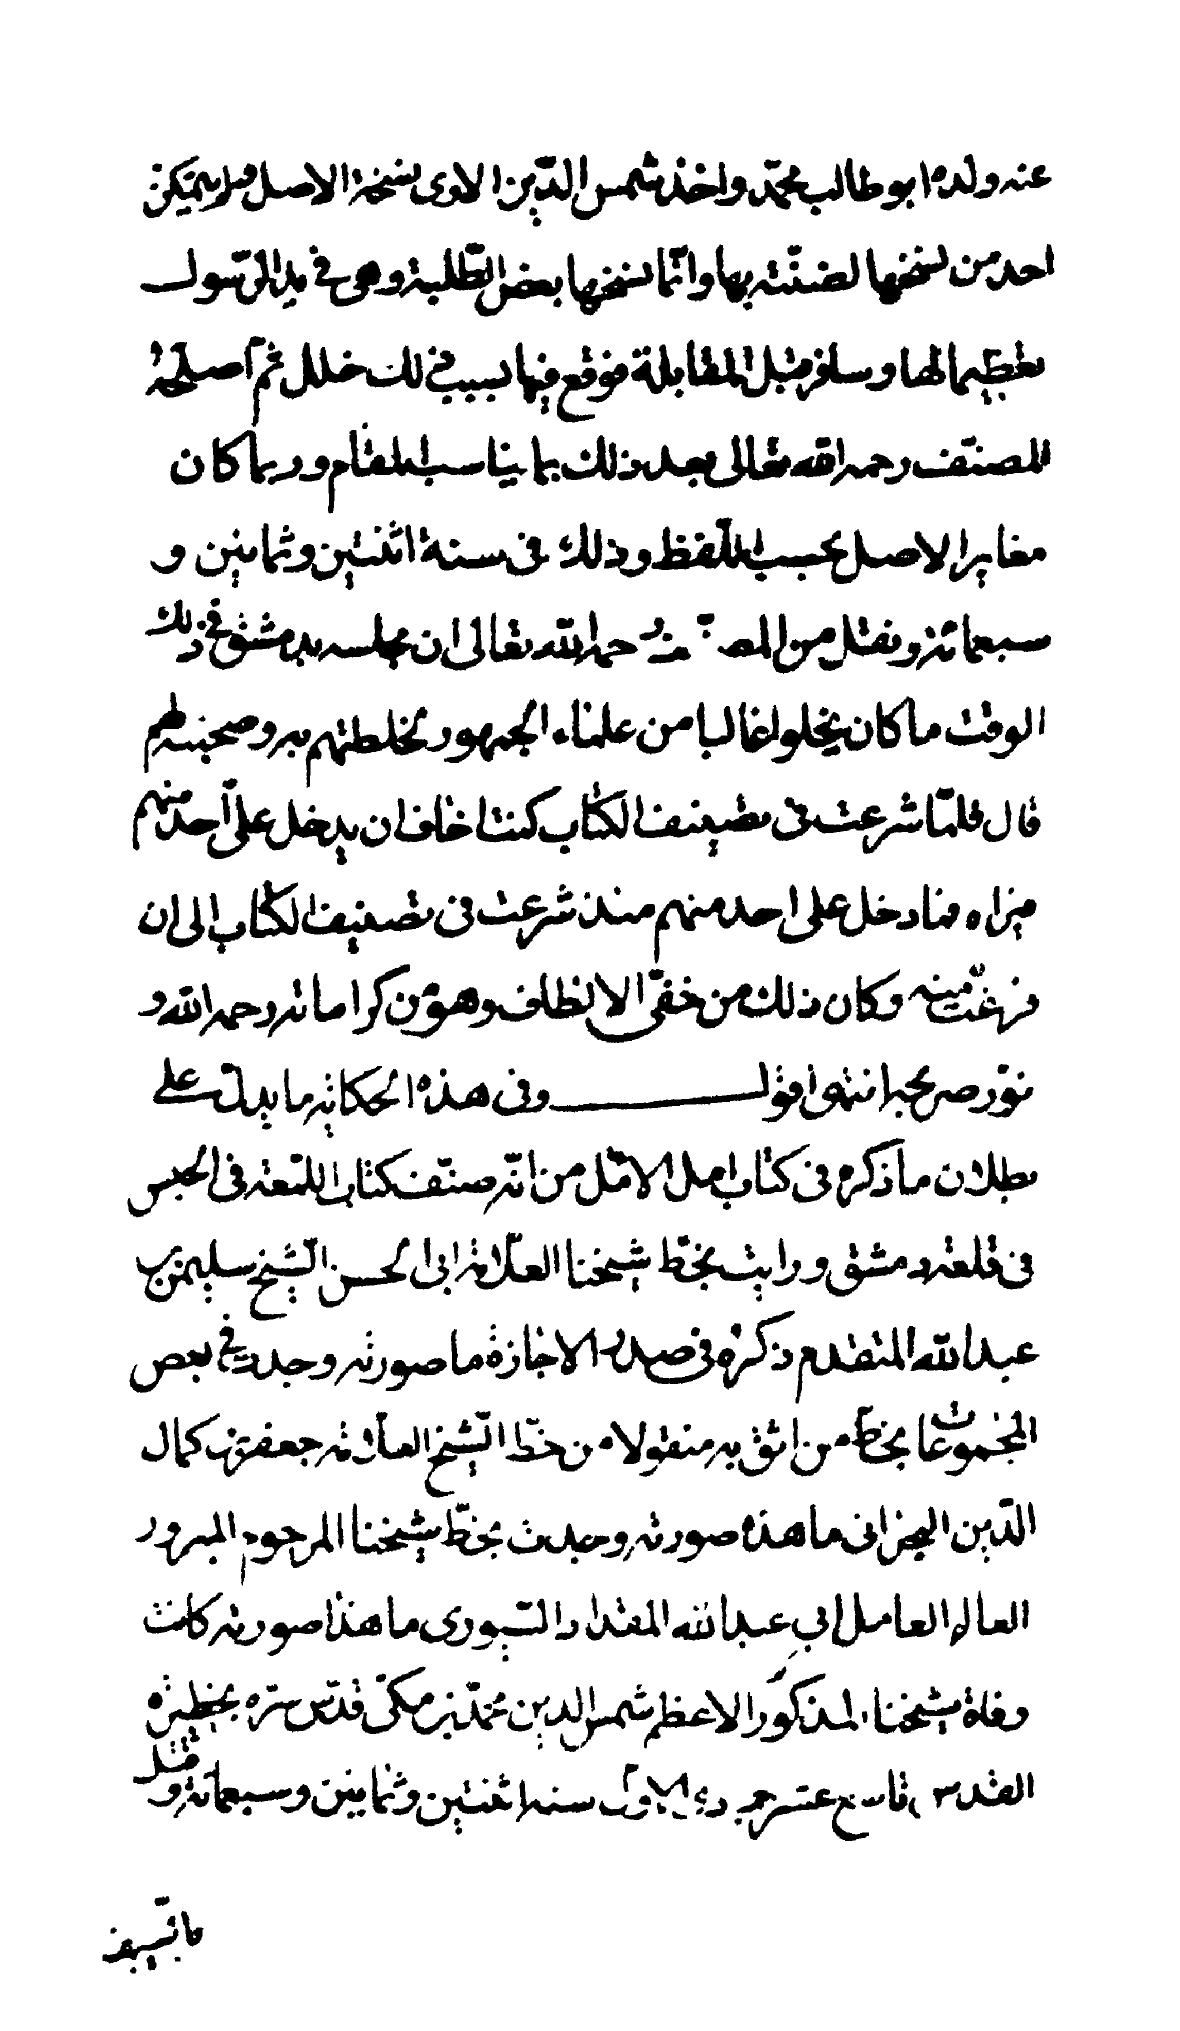 عنه ولده ابو طالب محمّد واخذ شمس الدّين الاوى نسخة الاصل ولم يتمكن
احد من نسخها لضنّته بها وانّما نسخها بعض الطّلبة وهى في يد الرّسول
تعظيما لها وسافر قبل المقابلة فوقع فيها بسبب ذلك خلل ثم اصلحه
المصنّف رحمه الله تعالى بعد ذلك بما يناسب المقام وربما كان
مغايرا لاصل بحسب اللّفظ وذلك فى سنة اثنتين وثمانين و
سبعمائة ونقل من المصنف رحمه الله تعالى ان مجلسه بدمشق في ذلك
الوقت ما كان يخلو غالبا من علماء الجمهور لخلطتهم به وصحبته لهم
قال فلمّا شرعت فى تصنيف الكتاب كنت اخاف ان يدخل علىّ احد منهم
فيراه فما دخل على احد منهم منذ شرعت فى تصنيف الكتاب الى ان
فرغت منه وكان ذلك من خفىّ الالطاف وهو من كراماته رحمه الله و
نوّر ضريحه انتهى اقول وفى هذه الحكاية ما يدلّ على
بطلان ما ذكره فى كتاب امل الآمل من انّه صنّف كتاب اللمعة فى الحبس
فى قلعة دمشق ورايت بخطّ شيخنا العلّامة ابى الحسن الشّيخ سليمن بن
عبد الله المتقدم ذكره فى صدر الاجازة ما صورته وجدت في بعض
المجموعات بخط من اثق به منقولا من خطّ الشّيخ العلّامة جعفر بن كمال
الدّين البحرانى ما هذه صورته وجدت بخطّ شيخنا المرحوم المبرور
العالم العامل ابي عبد الله المقداد السّيورى ما هذا صورته كانت
وفاة شيخنا المذكور الاعظم شمس الدين محمّد بن مكىّ قدّس سرّه بحظيرة
القدس تاسع عشر جمادى الاول سنة اثنتين وثمانين وسبعمائة وقتل
بالسّيف